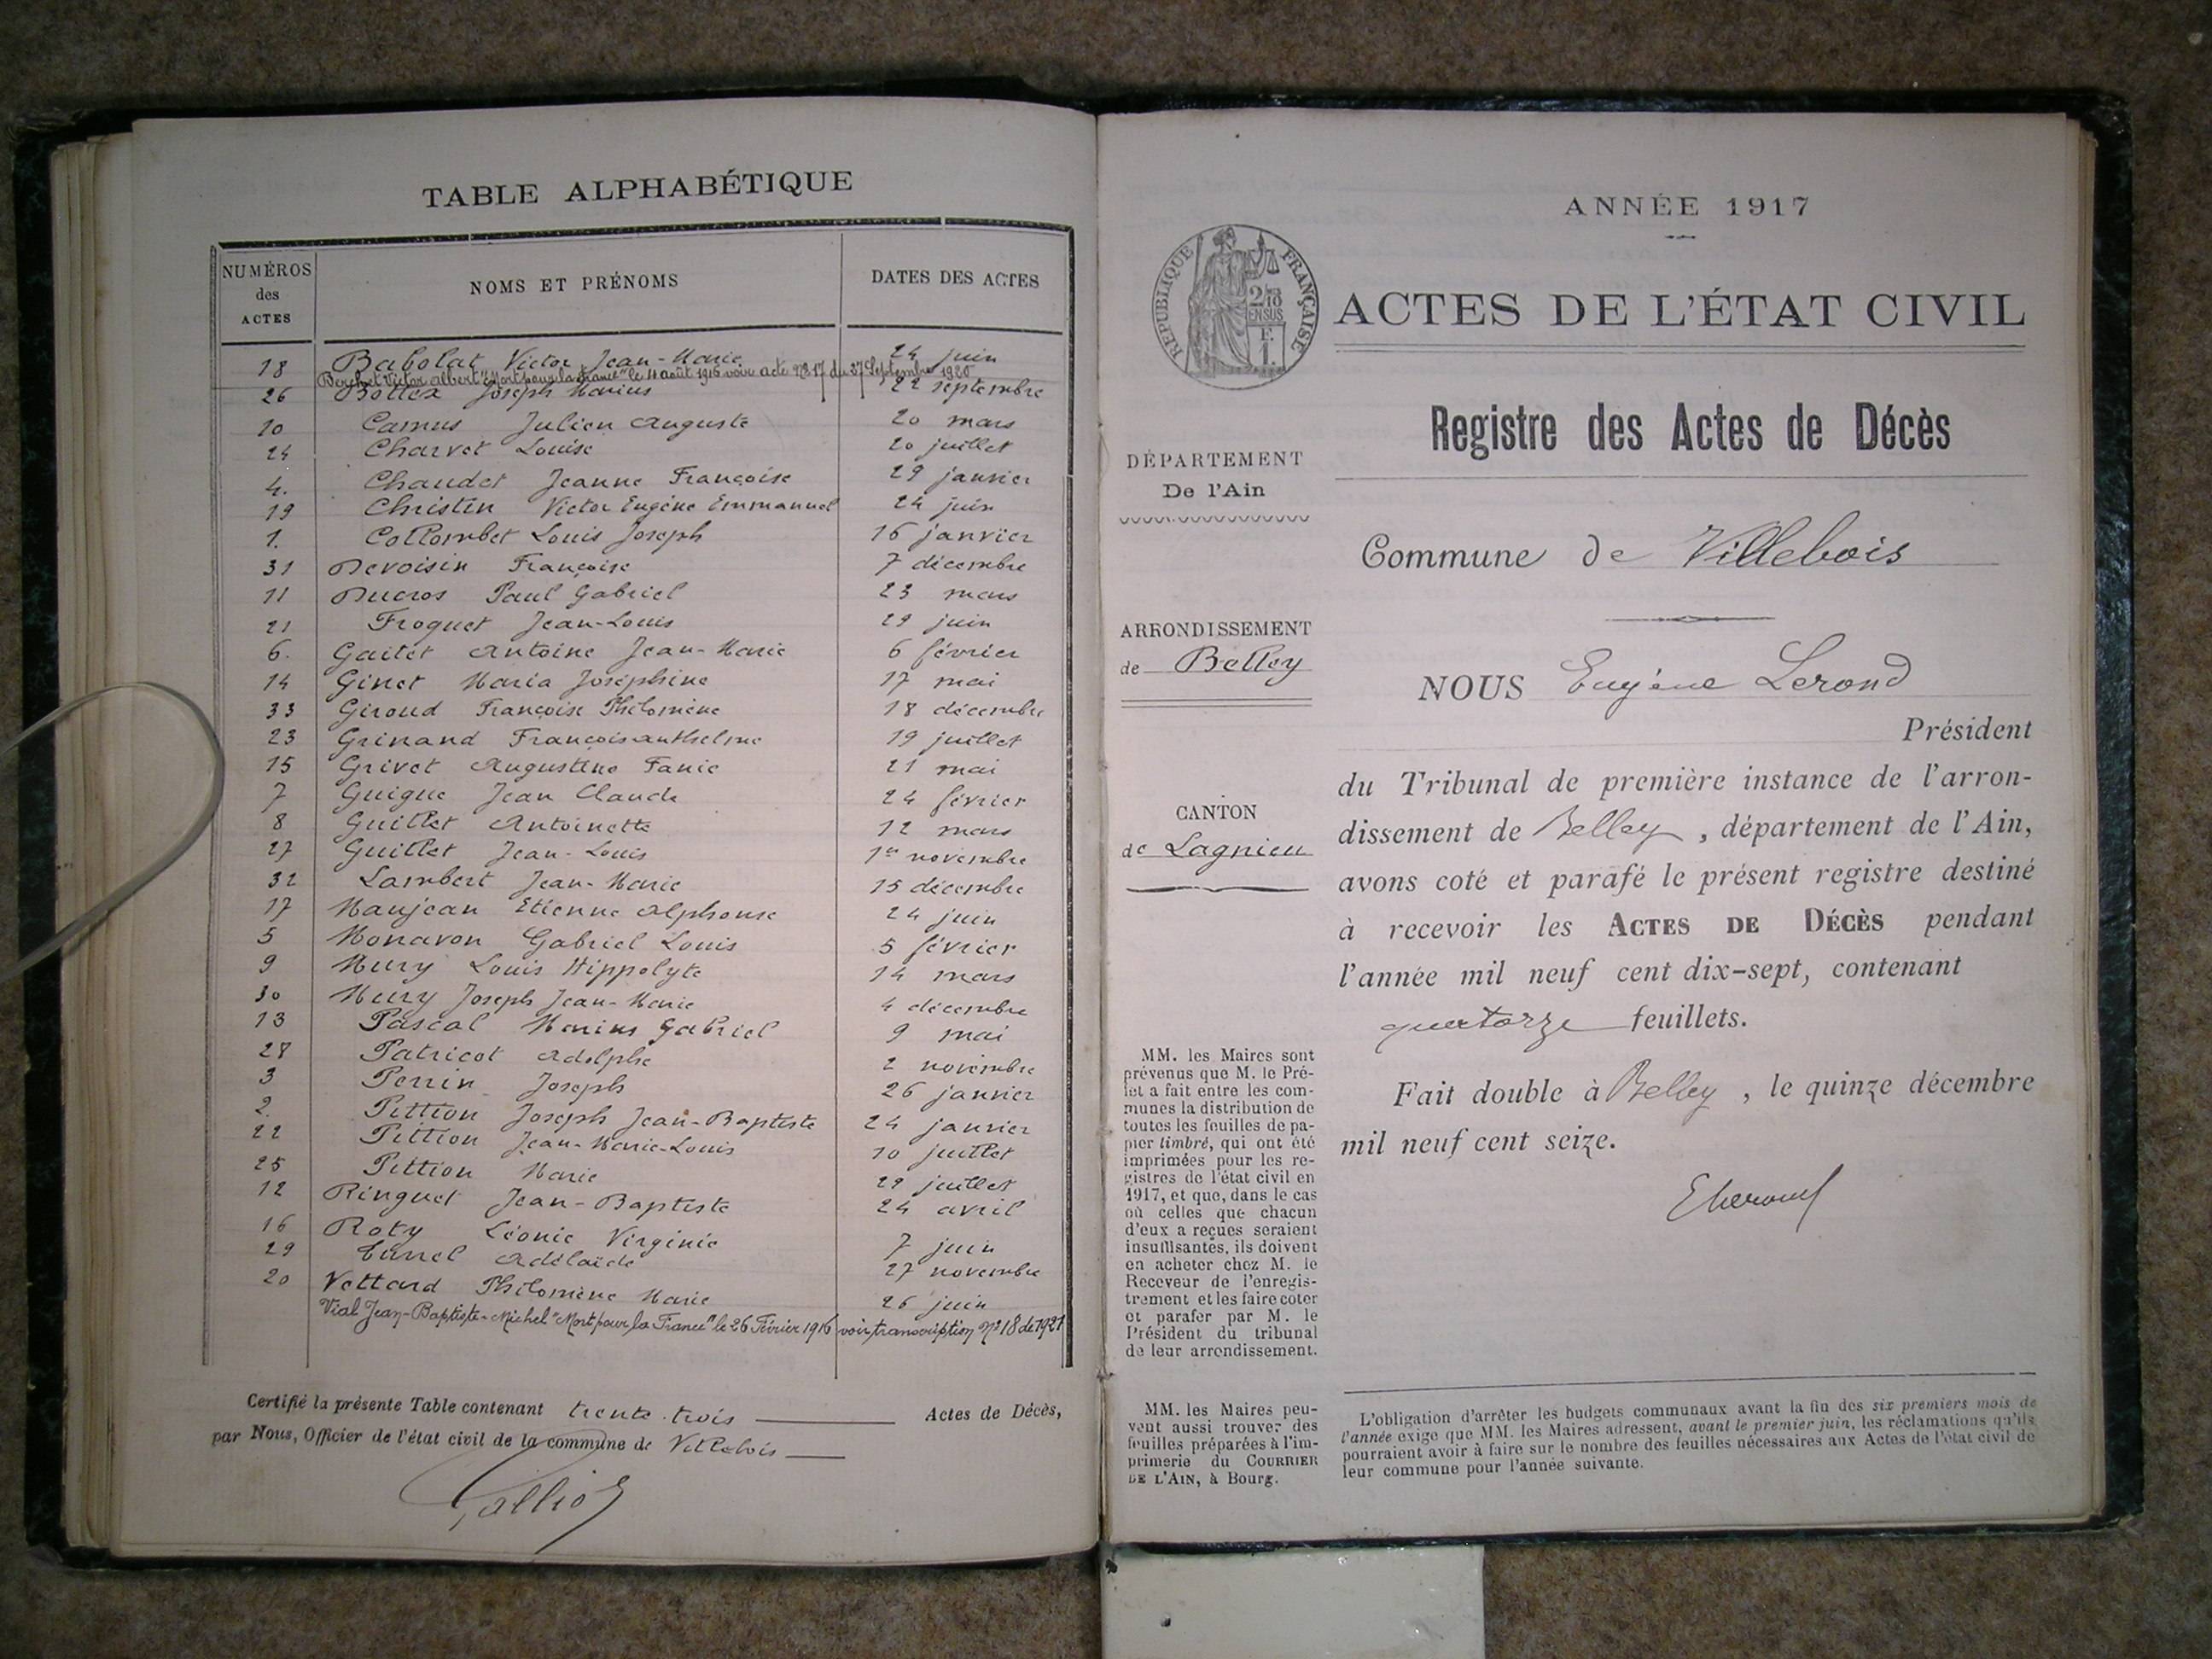 TABLE ALPHABÉTIQUE
NUMÉROS des ACTES NOMS ET PRÉNOMS DATES DES ACTES
18 Babolat Victor Jean-Marie 24 juin
Berchet Victor Albert "Mort pour la France" le 11 août 1916 voir acte No 17 du 27 Septembre 1920
26 Bottex Joseph Marius 22 septembre
10 Camus Julien Auguste 20 mars
24 Charvet Louise 20 juillet
4. Chaudet Jeanne Françoise 29 janvier
19 Christin Victor Eugène Emmanuel 24 juin
1. Collombet Louis Joseph 16 janvier
31 Devoisin Françoise 7 décembre
11 Ducros Paul Gabriel 23 mars
21 Froquet Jean-Louis 29 juin
6. Gaitet Antoine Jean-Marie 6 février
14 Ginet Maria Joséphine 17 mai
33 Giroud Françoise Philomène 18 décembre
23 Grinand François Anthelme 19 juillet
15 Grivet Augustine Fanie 21 mai
7 Guigue Jean Claude 24 février
8 Guillet Antoinette 12 mars
27 Guillet Jean-Louis 1er novembre
32 Lambert Jean-Marie 15 décembre
17 Maujean Etienne Alphonse 24 juin
5 Monavon Gabriel Louis 5 février
9 Mury Louis Hippolyte 14 mars
30 Mury Joseph Jean-Marie 4 décembre
13 Pascal Marius Gabriel 9 mai
28 Patricot Adolphe 2 novembre
3 Perrin Joseph 26 janvier
2. Pittion Joseph Jean-Baptiste 24 janvier
22 Pittion Jean-Marie-Louis 10 juillet
25 Pittion Marie 29 juillet
12 Ringuet Jean-Baptiste 24 avril
16 Roty Léonie Virginie 7 juin
29 Tunel Adélaïde 27 novembre
20 Vettard Philomène Marie 26 juin
Vial Jean-Baptiste-Michel "Mort pour la France" le 26 Février 1916 voir transcription No 18 de 1921
Certifié la présente Table contenant trente-trois Actes de Décès,
par Nous, Officier de l'état civil de la commune de Villebois
ANNÉE 1917
RÉPUBLIQUE FRANÇAISE
2/10
EN SUS
F.
1.
ACTES DE L'ÉTAT CIVIL
Registre des Actes de Décès
DÉPARTEMENT
De l'Ain
ARRONDISSEMENT
de Belley
CANTON
de Lagnieu
MM. les Maires sont
prévenus que M. le Pré-
fet a fait entre les com-
munes la distribution de
toutes les feuilles de pa-
pier timbré, qui ont été
imprimées pour les re-
gistres de l'état civil en
1917, et que, dans le cas
où celles que chacun
d'eux a reçues seraient
insuffisantes, ils doivent
en acheter chez M. le
Receveur de l'enregis-
trement et les faire coter
et parafer par M. le
Président du tribunal
de leur arrondissement.
MM. les Maires peu-
vent aussi trouver des
feuilles préparées à l'im-
primerie du COURRIER
DE L'AIN, à Bourg.
Commune de Villebois
NOUS Eugène Lerond
Président
du Tribunal de première instance de l'arron-
dissement de Belley, département de l'Ain,
avons coté et parafé le présent registre destiné
à recevoir les ACTES DE DÉCÈS pendant
l'année mil neuf cent dix-sept, contenant
quatorze feuillets.
Fait double à Belley, le quinze décembre
mil neuf cent seize.
ELerond
L'obligation d'arrêter les budgets communaux avant la fin des six premiers mois de
l'année exige que MM. les Maires adressent, avant le premier juin, les réclamations qu'ils
pourraient avoir à faire sur le nombre des feuilles nécessaires aux Actes de l'état civil de
leur commune pour l'année suivante.